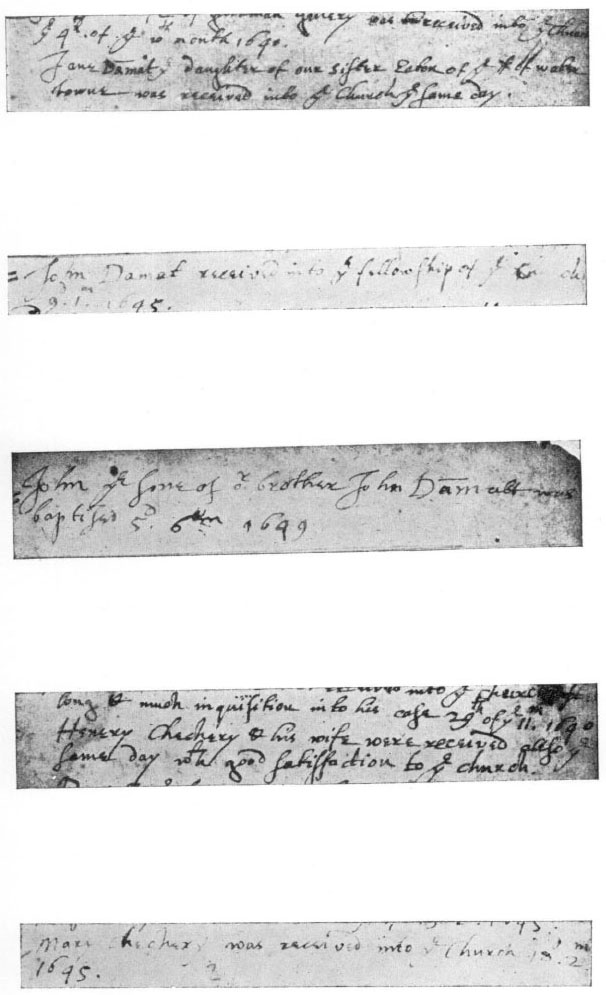 was received into ye Church
ye 4th of ye 10th month 1640.
Jane Damat daughter of our sister Eaton of ye of water
towne was received into ye Church ye same day.
John Damat received into ye fellowship of ye
9d. 1m. 1645.
John ye sone of or brother John Damatt was
baptised 5d 6m 1649
received into ye
long & much inquisition into his case 29th of ye 11m. 1640
Henery Checkery & his wife were received also ye
same day wth good satisfaction to ye church.
Mary Checkery was received into ye Church m
1645. 2